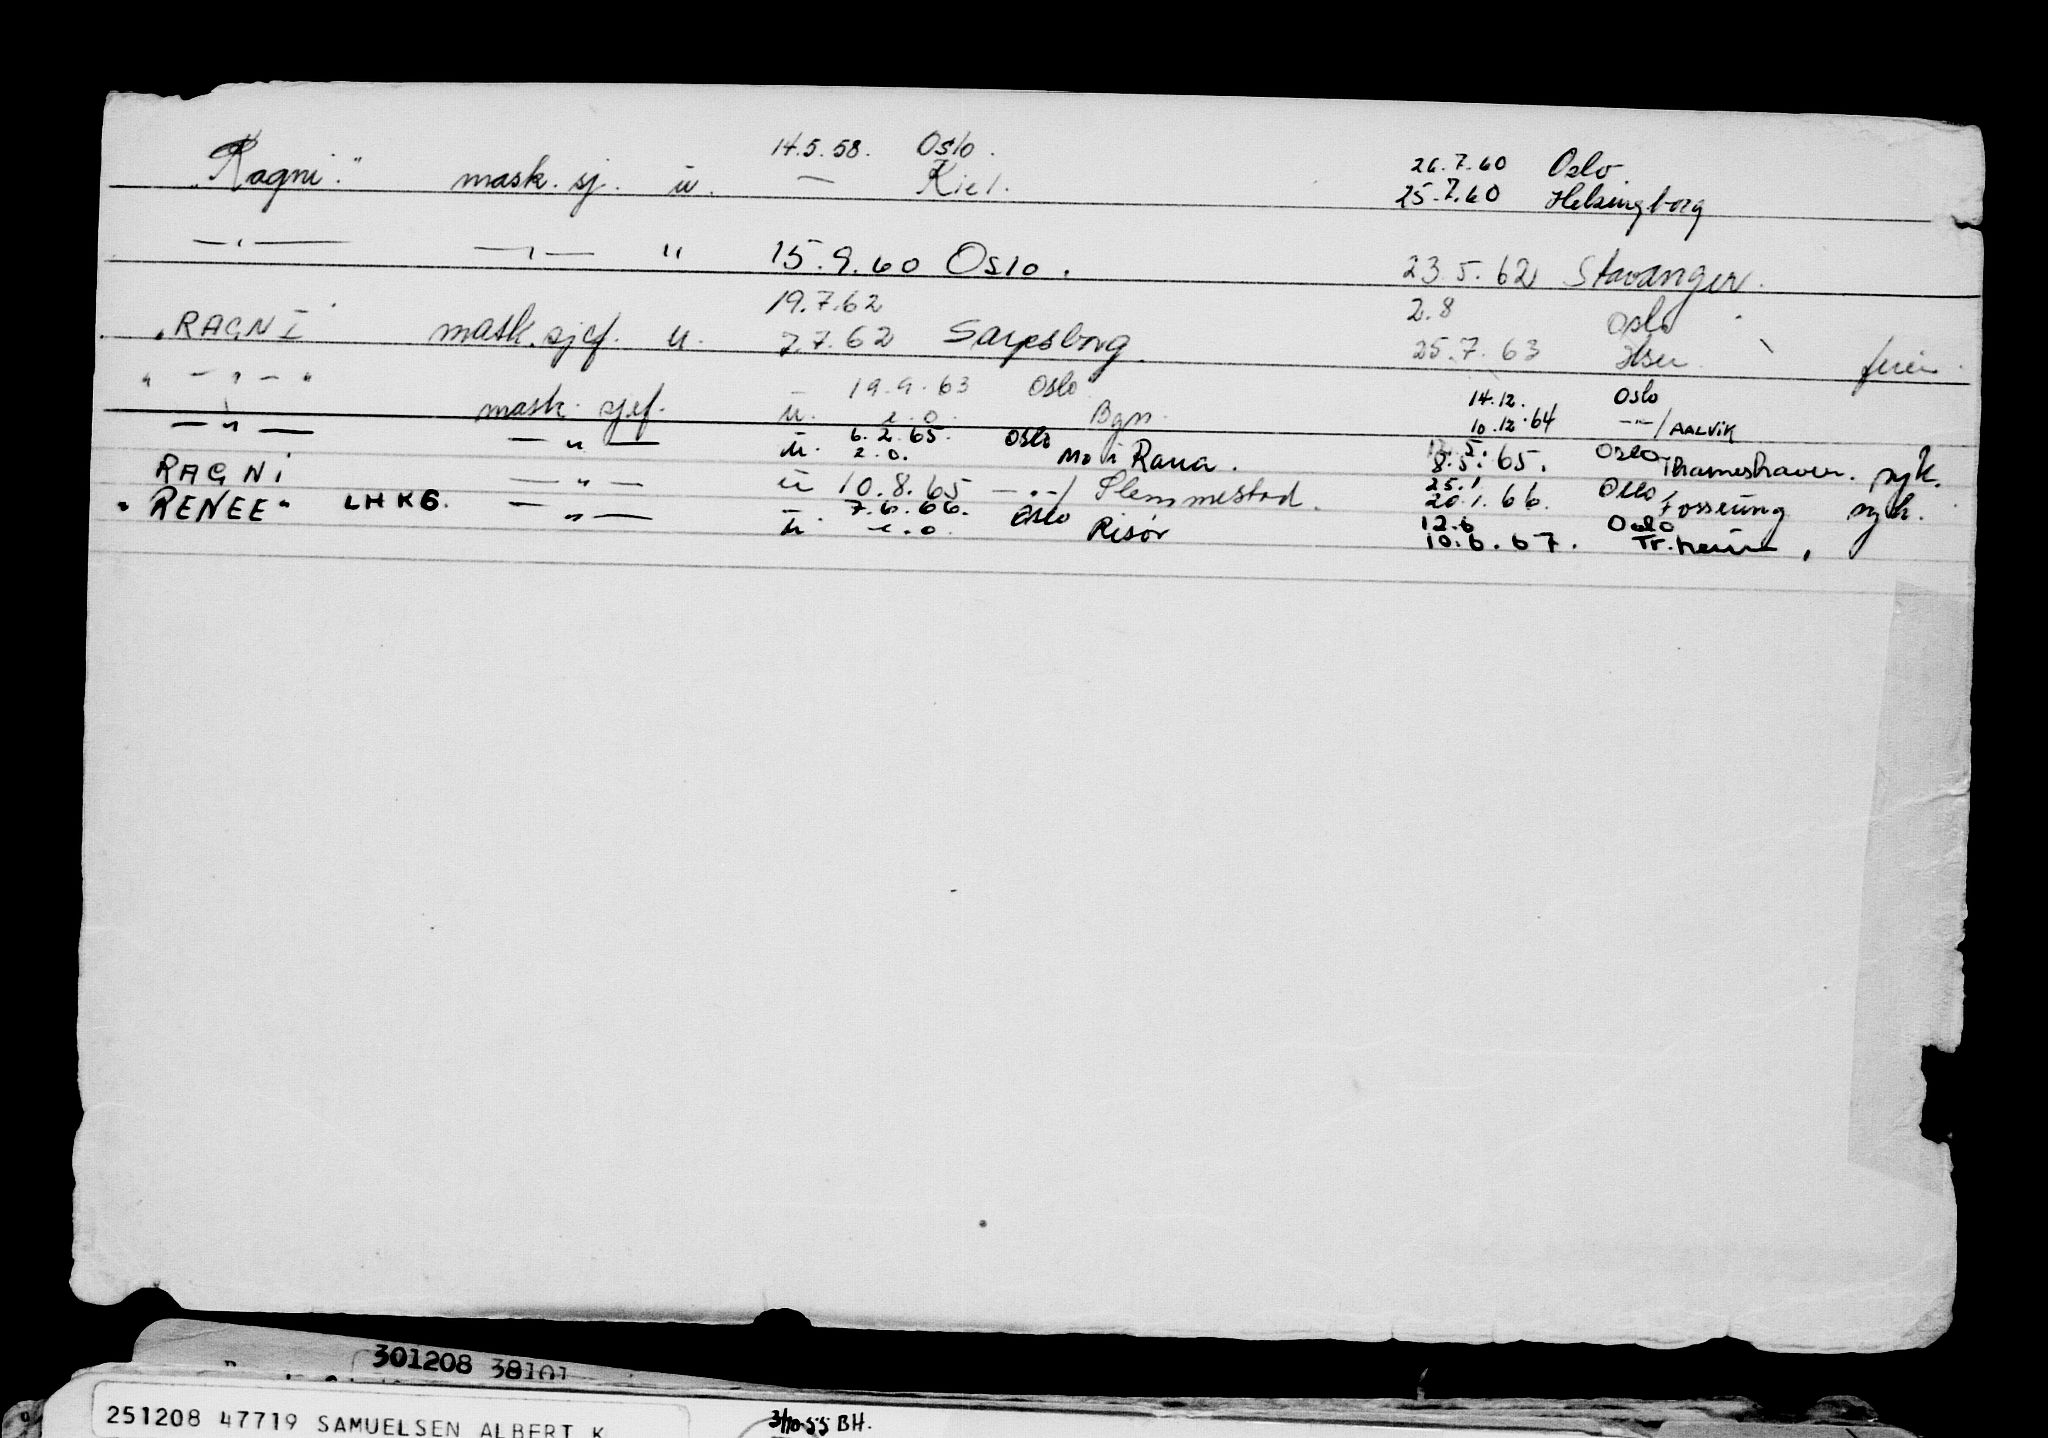 14.5.58. Oslo. 26.7.60 Oslo.
"Ragni." mask. sj. u. — Kiel. 25.7.60 Helsingborg
—"— —"— " 15.9.60 Oslo. 23.5.62 Stavanger.
19.7.62 2.8 Oslo
"RAGNI mask.sjef. u. 7.7.62 Sarpsborg 25.7.63 ferie.
" — " — " 19.9.63 Oslo 14.12. Oslo
mask. sjef. u. e.o. Bgn. 10.12.64 —"—/AALVIK
—"— —"— u. 6.2.65. Oslo Oslo
e.o. Mo i Rana. 8.5.65. Thamshavn. syk.
RAGNI —"— u 10.8.65 —"—/ Slemmestad. 25.1 Oslo
20.1.66. syk.
"RENEE" LHKG. —"— u. 7.6.66. Oslo 12.6 Oslo
e.o. Risør 10.6.67. Tr.heim,
301208 38101
251208 47719 SAMUELSEN ALBERT K
3/10-55 BH.